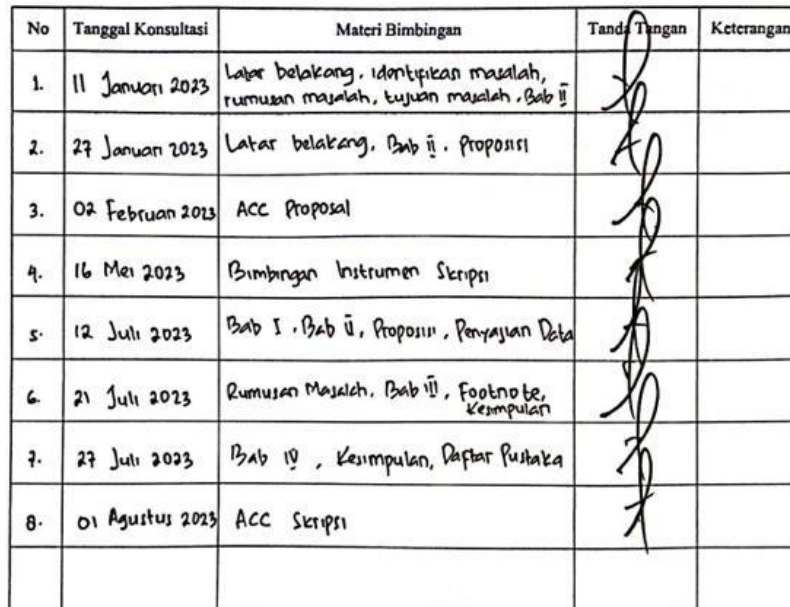 No Tanggal Konsultasi Materi Bimbingan Tanda Tangan Keterangan
1. 11 Januari 2023 Latar belakang, identifikan masalah,
rumusan masalah, tujuan masalah, Bab II
2. 27 Januari 2023 Latar belakang, Bab II, Proposisi
3. 02 Februari 2023 ACC Proposal
4. 16 Mei 2023 Bimbingan Instrumen Skripsi
5. 12 Juli 2023 Bab I, Bab II, Proposisi, Penyajian Data
6. 21 Juli 2023 Rumusan Masalah, Bab III, Footnote,
Kesimpulan
7. 27 Juli 2023 Bab IV, Kesimpulan, Daftar Pustaka
8. 01 Agustus 2023 ACC Skripsi